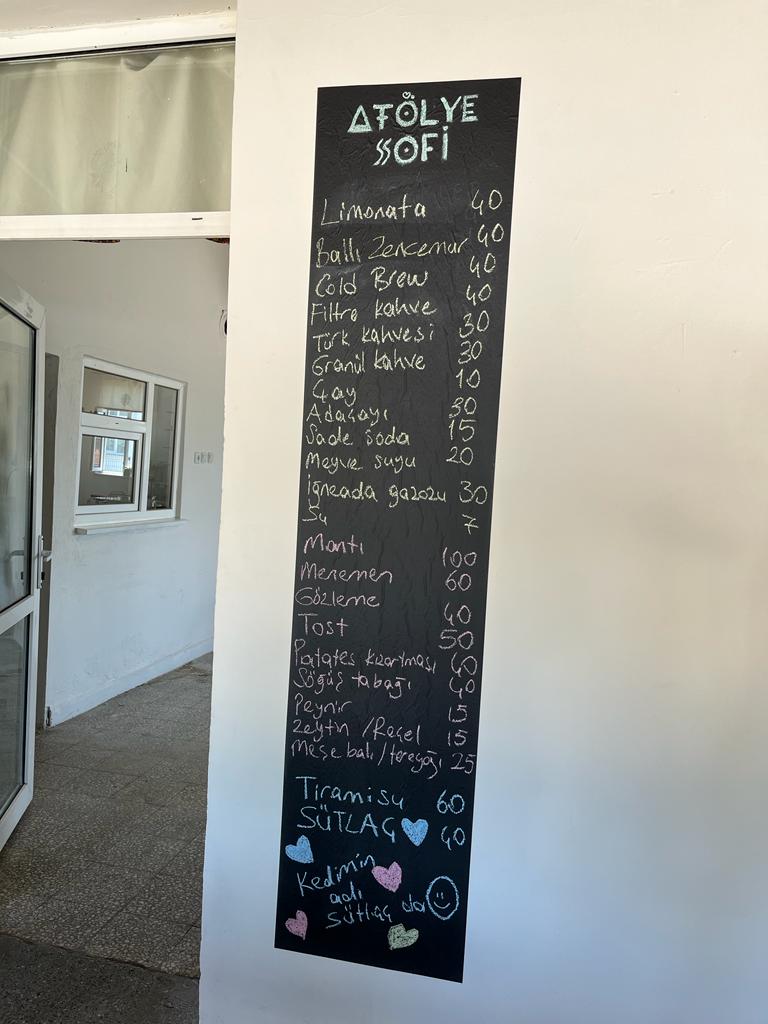 ATÖLYE
SOFİ
Limonata 40
Ballı Zencemar 40
Cold Brew 40
Filtre kahve 40
Türk kahvesi 30
Granül kahve 30
Çay 10
Adaçayı 30
Sade soda 15
Meyve suyu 20
İğneada gazozu 30
Su 7
Mantı 100
Menemen 60
Gözleme 40
Tost 50
Patates kızartması 60
Söğüş tabağı 40
Peynir 15
Zeytin / Reçel 15
Meşe balı / tereyağı 25
Tiramisu 60
SÜTLAÇ 40
Kedimin
adı
sütlaç da